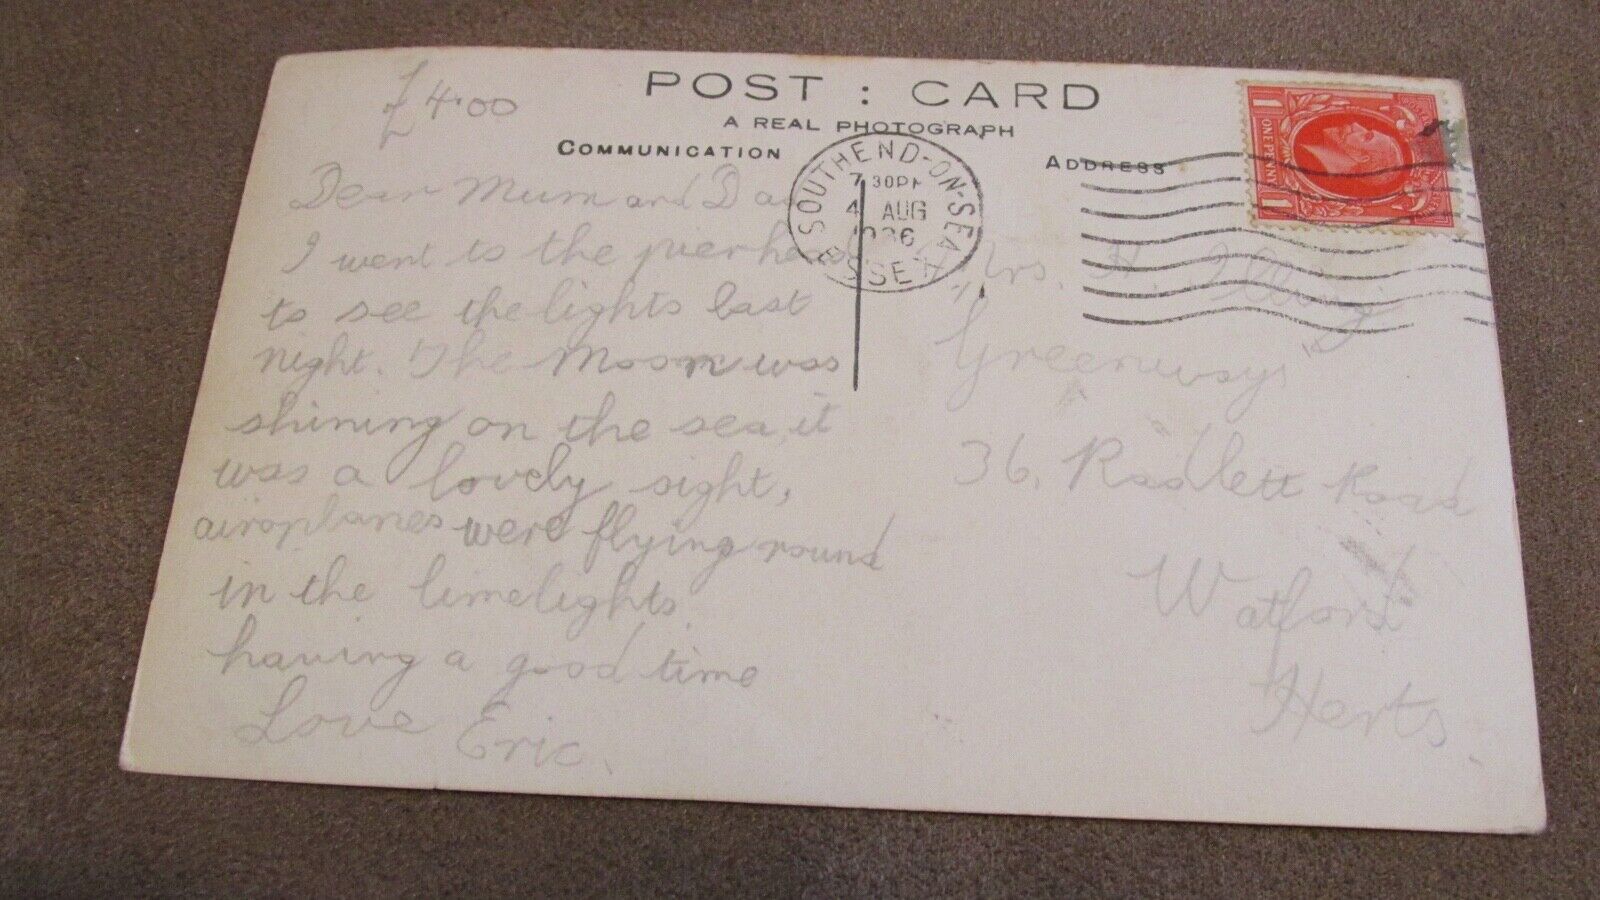 £4.00
POST : CARD
A REAL PHOTOGRAPH
COMMUNICATION
ADDRESS
SOUTHEND-ON-SEA
ESSEX
7 30PM
4 AUG
1936
ONE PENNY
1
1
Dear Mum and Dad
I went to the
to see the lights last
night. The Moon was
shining on the sea it
was a lovely sight,
airoplanes were flying round
in the limelights
having a good time
Love Eric.
Mrs. H.
Greenways
36, Radlett Road
Watford
Herts.